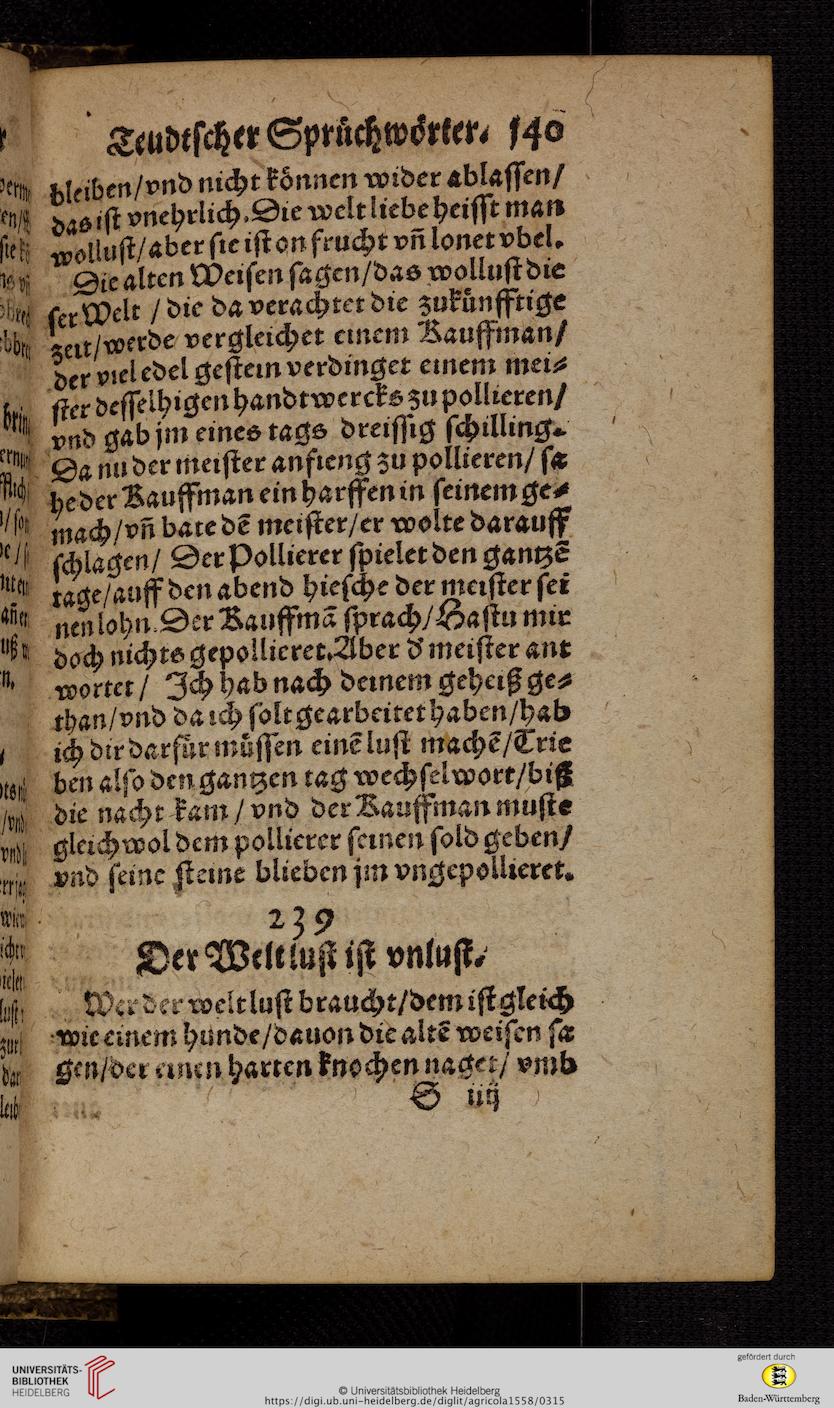 Teudtscher Sprüchwörter. 140
bleiben/vnd nicht können wider ablassen/
das ist vnehrlich. Die welt liebe heisst man
wollust/aber sie ist on frucht vñ lonet vbel.
Die alten Weisen sagen/das wollust die
ser Welt / die da verachtet die zukünfftige
zeit/werde vergleichet einem Kauffman/
der viel edel gestein verdinget einem mei⸗
ster desselhigen handtwercks zu pollieren/
vnd gab jm eines tags dreissig schilling.
Da nu der meister anfieng zu pollieren/ sa
he der Kauffman ein harffen in seinem ge⸗
mach/vñ bate dē meister/er wolte darauff
schlagen/ Der Pollierer spielet den gantzē
tage/auff den abend hiesche der meister sei
nen lohn. Der Kauffmā sprach/Hastu mir
doch nichts gepollieret. Aber d' meister ant
wortet / Ich hab nach deinem geheiß ge⸗
than/vnd da ich solt gearbeitet haben/hab
ich dir darfür müssen einē lust machē/Trie
ben also den gantzen tag wechsel wort/biß
die nacht kam / vnd der Kauffman muste
gleichwol dem pollierer seinen sold geben/
vnd seine steine blieben jm vngepollieret.
239
Der Welt lust ist vnlust.
Wer der welt lust braucht/dem ist gleich
wie einem hunde/dauon die altē weisen sa
gen/der einen harten knochen naget/ vmb
S iiij
UNIVERSITÄTS-
BIBLIOTHEK
HEIDELBERG
© Universitätsbibliothek Heidelberg
https://digi.ub.uni-heidelberg.de/diglit/agricola1558/0315
gefördert durch
Baden-Württemberg